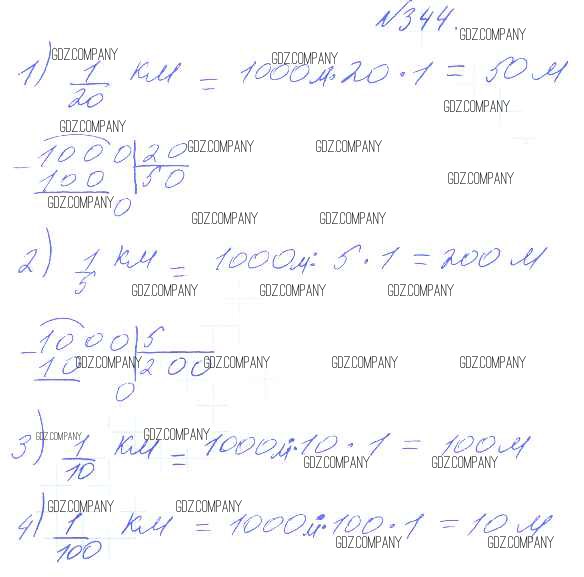 №344.
GDZ.COMPANY
1) 1/20 км = 1000м:20·1 = 50 м
GDZ.COMPANY GDZ.COMPANY
GDZ.COMPANY
GDZ.COMPANY
- 1000 | 20
GDZ.COMPANY GDZ.COMPANY
100 | 50
GDZ.COMPANY
GDZ.COMPANY
0
GDZ.COMPANY GDZ.COMPANY
2) 1/5 км = 1000м: 5·1 = 200 м
GDZ.COMPANY GDZ.COMPANY GDZ.COMPANY
- 1000 | 5
10 | 200
GDZ.COMPANY GDZ.COMPANY GDZ.COMPANY GDZ.COMPANY
0
3) 1/10 км = 1000м:10·1 = 100м
GDZ.COMPANY GDZ.COMPANY
GDZ.COMPANY GDZ.COMPANY
4) 1/100 км = 1000м:100·1 = 10 м
GDZ.COMPANY GDZ.COMPANY
GDZ.COMPANY GDZ.COMPANY